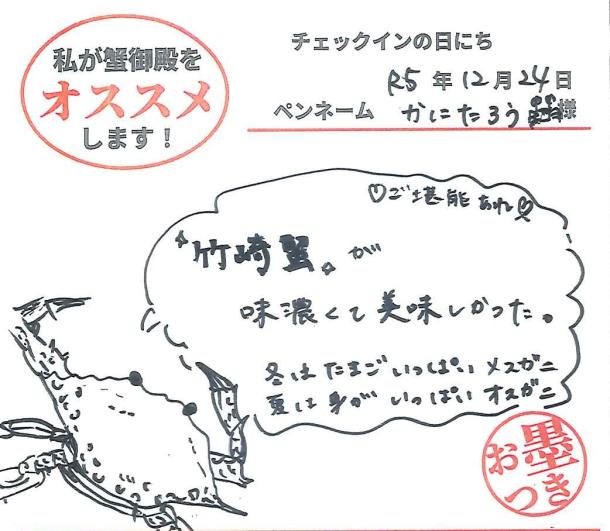 私が蟹御殿を
オススメ
します!
チェックインの日にち
R5年12月24日
ペンネーム かにたろう 様
♡ご堪能あれ♡
"竹崎蟹"が
味濃くて美味しかった。
冬はたまごいっぱいメスガニ
夏は身がいっぱいオスガニ
お墨つき